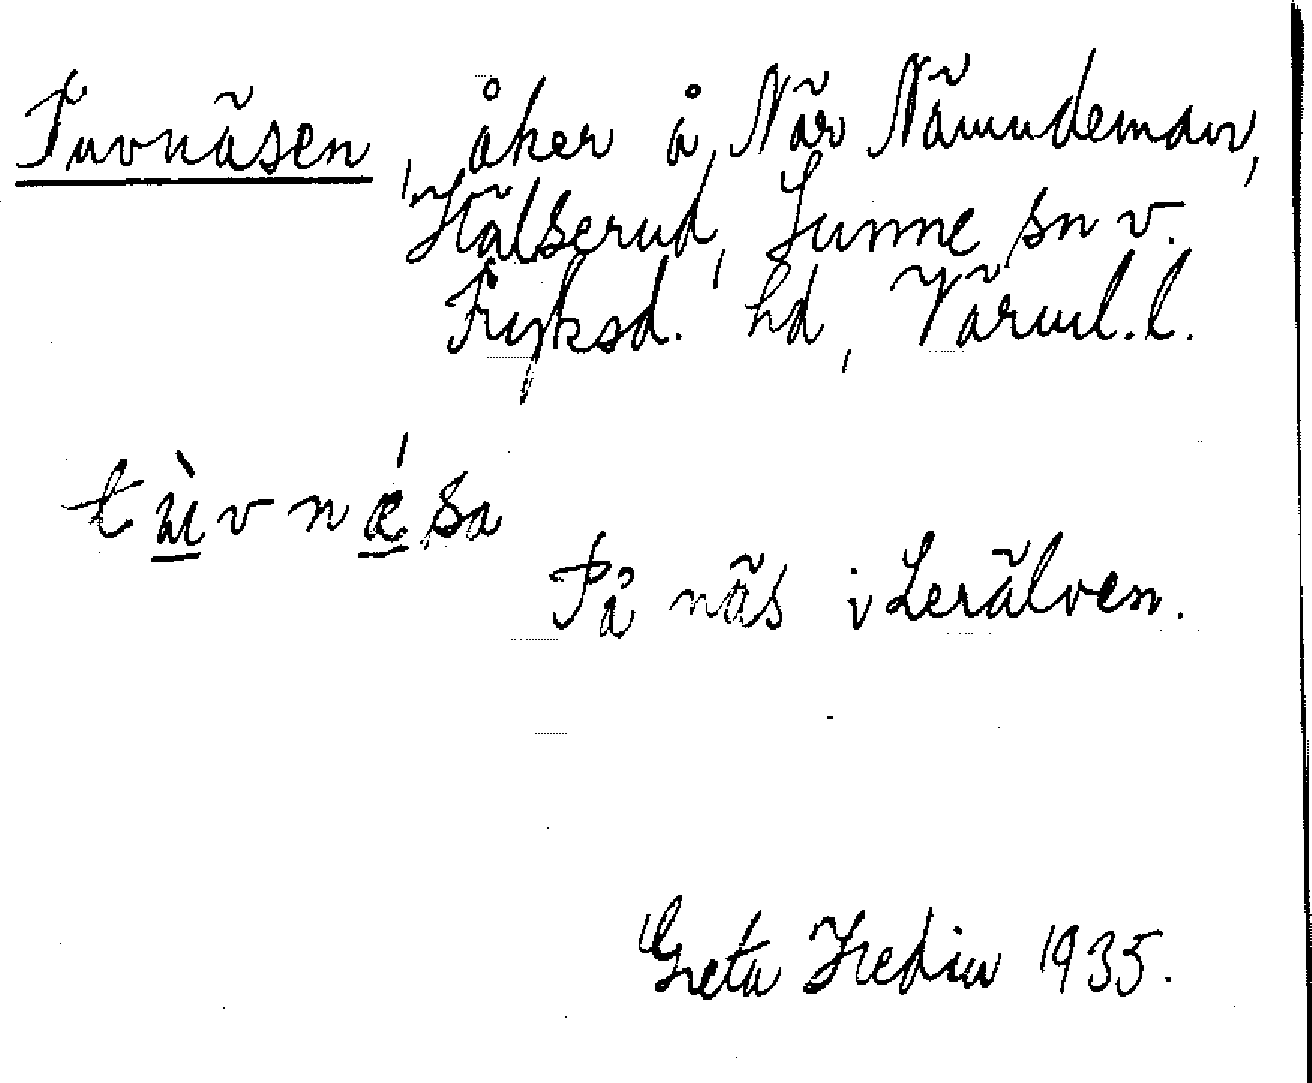 Tuvnäsen, åker å När Nämndeman,
Hälserud, Sunne sn v.
Fryksd. hd, Värml.l.
tùvnǽsa
På näs i Lerälven.
Greta Hedin 1935.